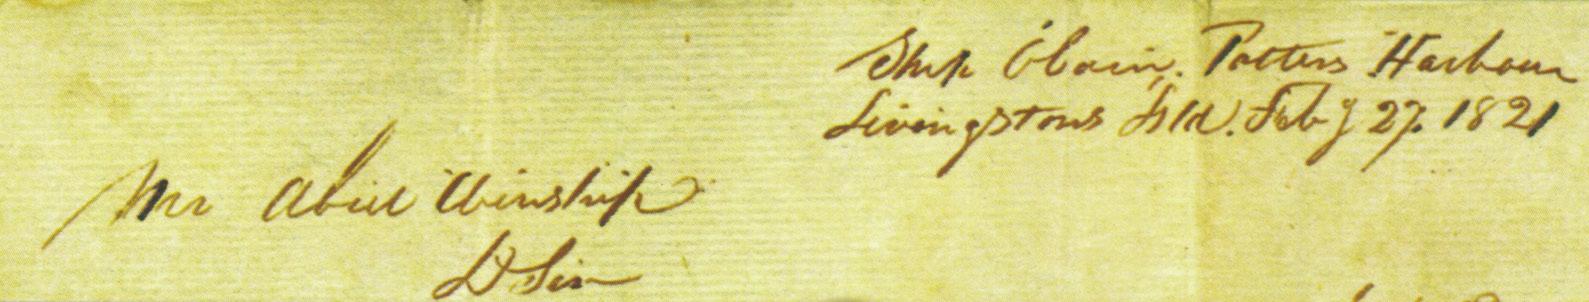 Ship O'Cain. Potters Harbour
Livingstons Isld. Feby 27. 1821
Mr Abiel Winship
D Sir